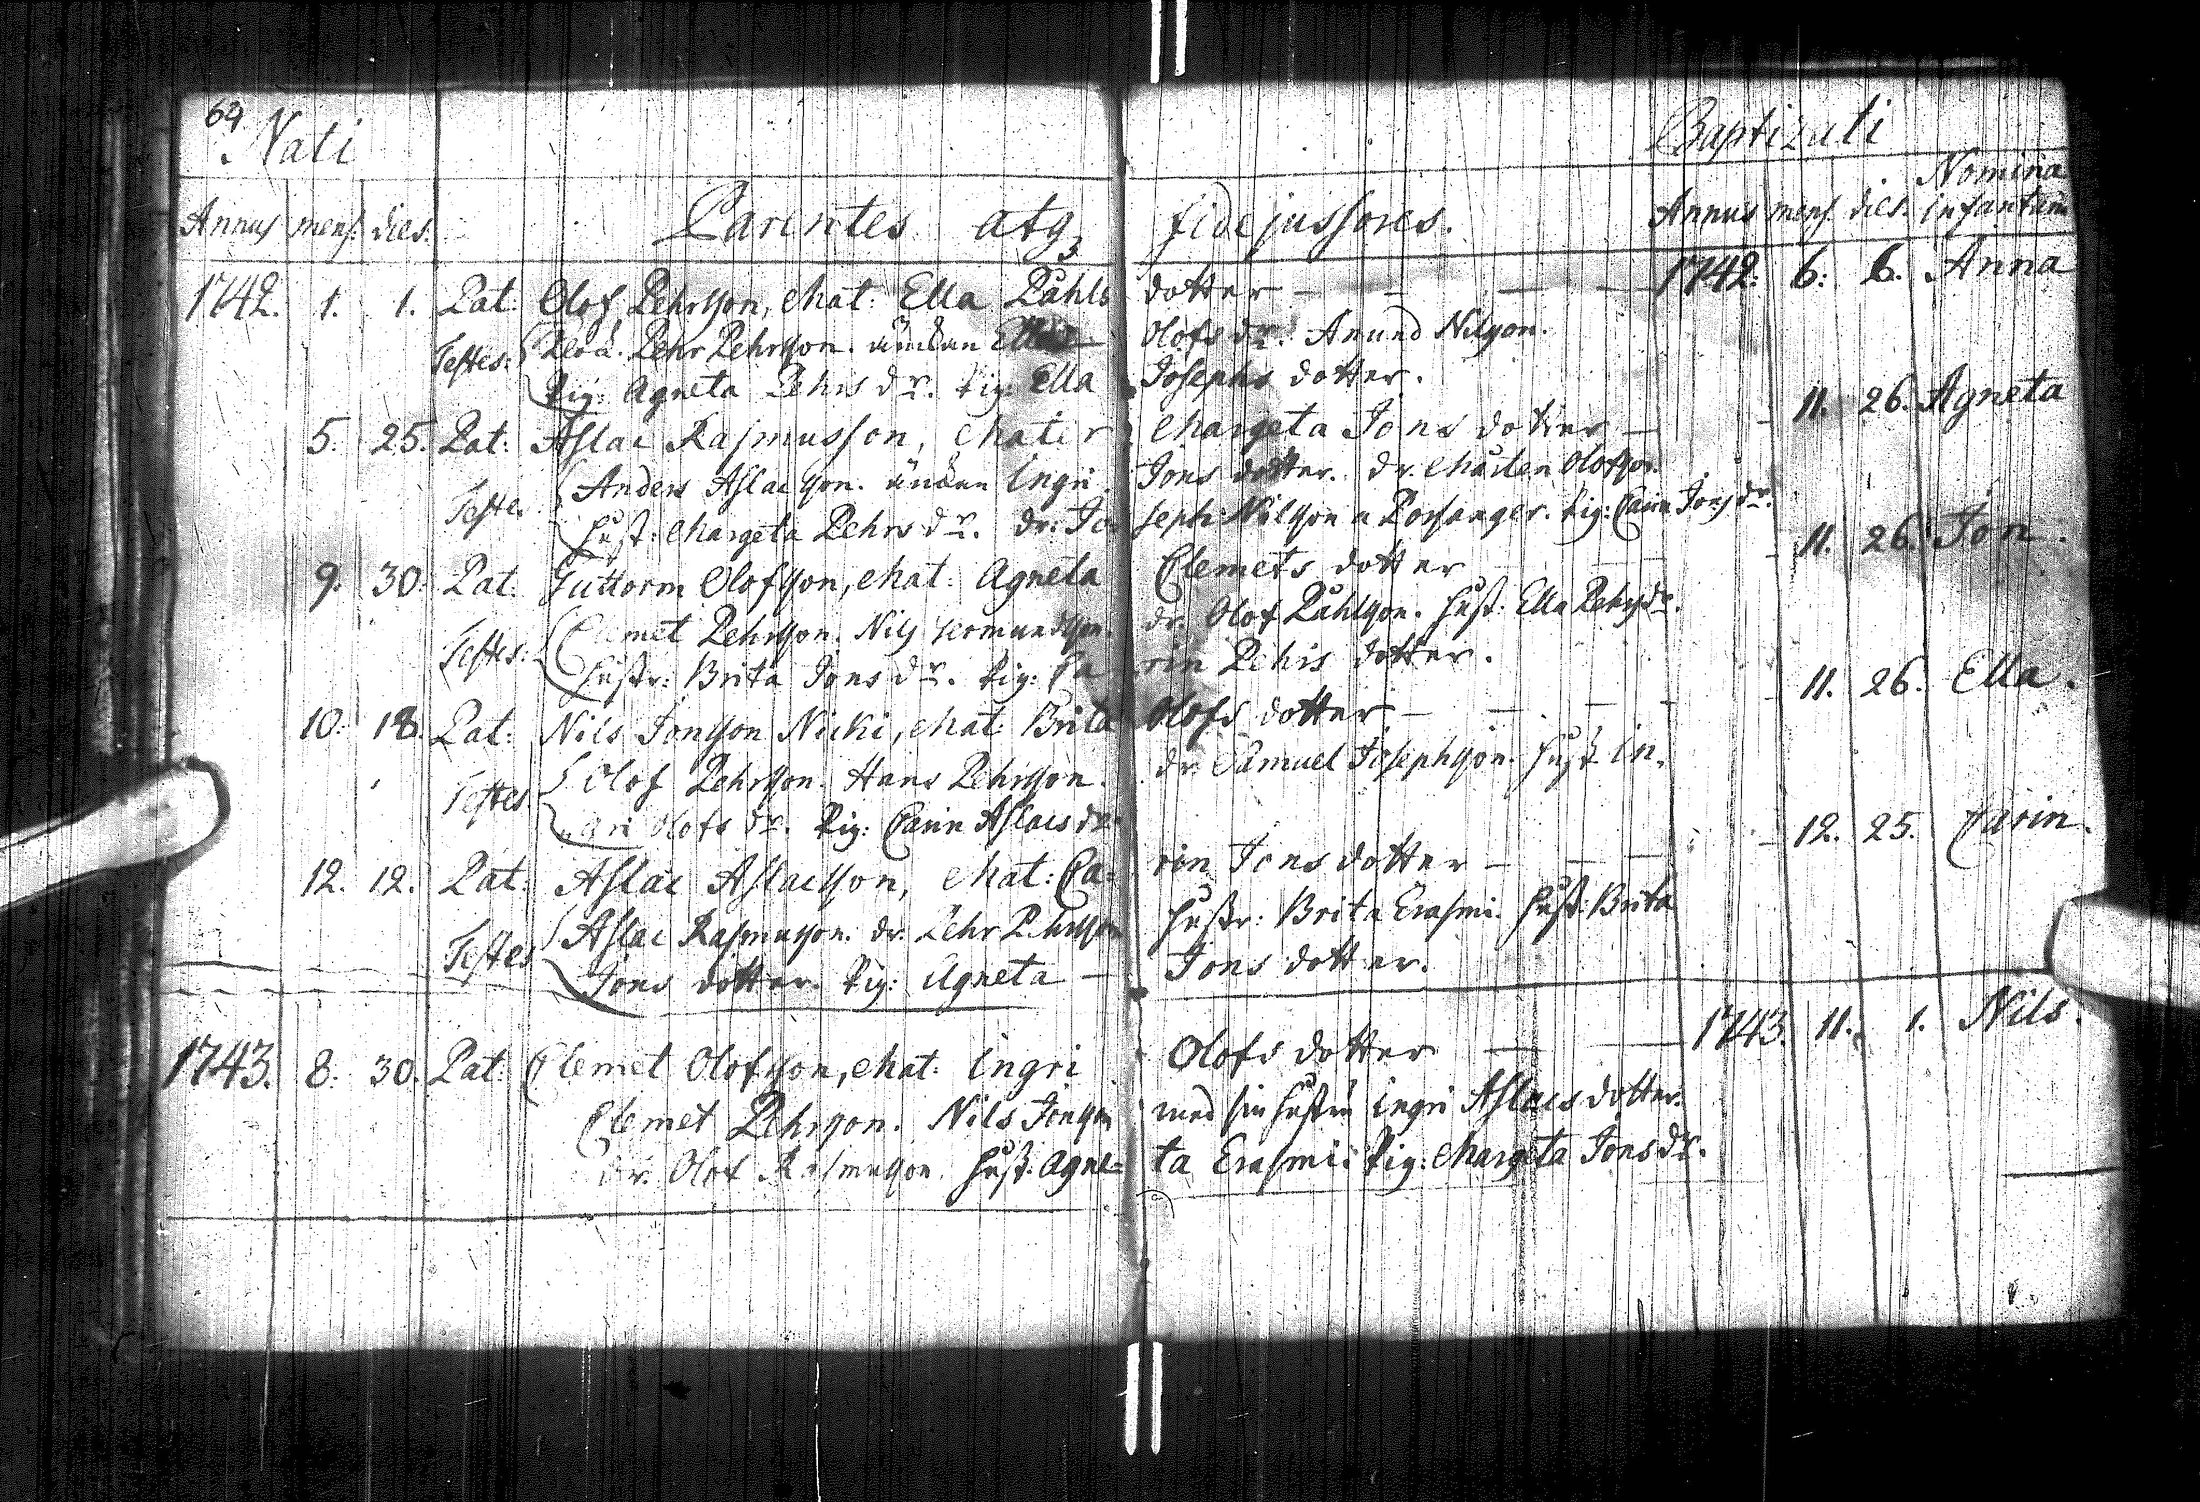 64
Nati Baptizati
Annus mens. dies. Parentes atq3 fidejussores. Annus mens. dies. Nomina infantum
1742. 1. 1. Pat: Olof Pehrsson, Mat: Ella Påhls dotter — 1742. 6: 6. Anna
Testes: Pehr Pehrsson. änkan Olofs dr. Amund Nilsson.
Pig: Agneta Pehrs dr. Pig: Ella Josephs dotter.
5. 25. Pat: Aslac Rasmusson, Mater Margeta Jons dotter — 11. 26. Agneta
Teste. Anders Aslacsson. änkan Ingri Jons dotter. dr. Mårten Olofsson.
Hust: Margeta Pehrs dr. dr. Joseph Nilsson a Porsanger. Pig: Carin Jons dr.
9. 30. Pat: Guttorm Olofsson, Mat: Agneta Clemets dotter 11. 26. Jon.
Testes: Clemet Pehrsson. Nils dr. Olof Påhlsson. Hust: Ella Pehrs dr.
Hustr: Brita Jons dr. Pig: Carin Pehrs dotter.
10. 18. Pat: Nils Jonsson Nicki, Mat: Brita Olofs dotter — 11. 26. Ella.
Testes: Olof Pehrsson. Hans Pehrsson. dr. Samuel Josephsson. Hust: In-
gri Olofs dr. Pig: Carin Aslacs dr.
12. 12. Pat: Aslac Aslacsson, Mat: Carin Jons dotter — 12. 25. Carin.
Testes Aslac Rasmusson. dr. Pehr Pehrsson Hustr: Brita Erasmi. Hust: Brita
Jons dotter. Pig: Agneta — Jons dotter.
1743. 8. 30. Pat: Clemet Olofsson, Mat: Ingri Olofs dotter — 1743. 11. 1. Nils.
Clemet Pehrsson. Nils Jonsson med sin hustru Ingri Aslacs dotter.
dr. Olof Rasmusson. Hust: Agne= ta Erasmi: Pig: Margeta Jons dr.